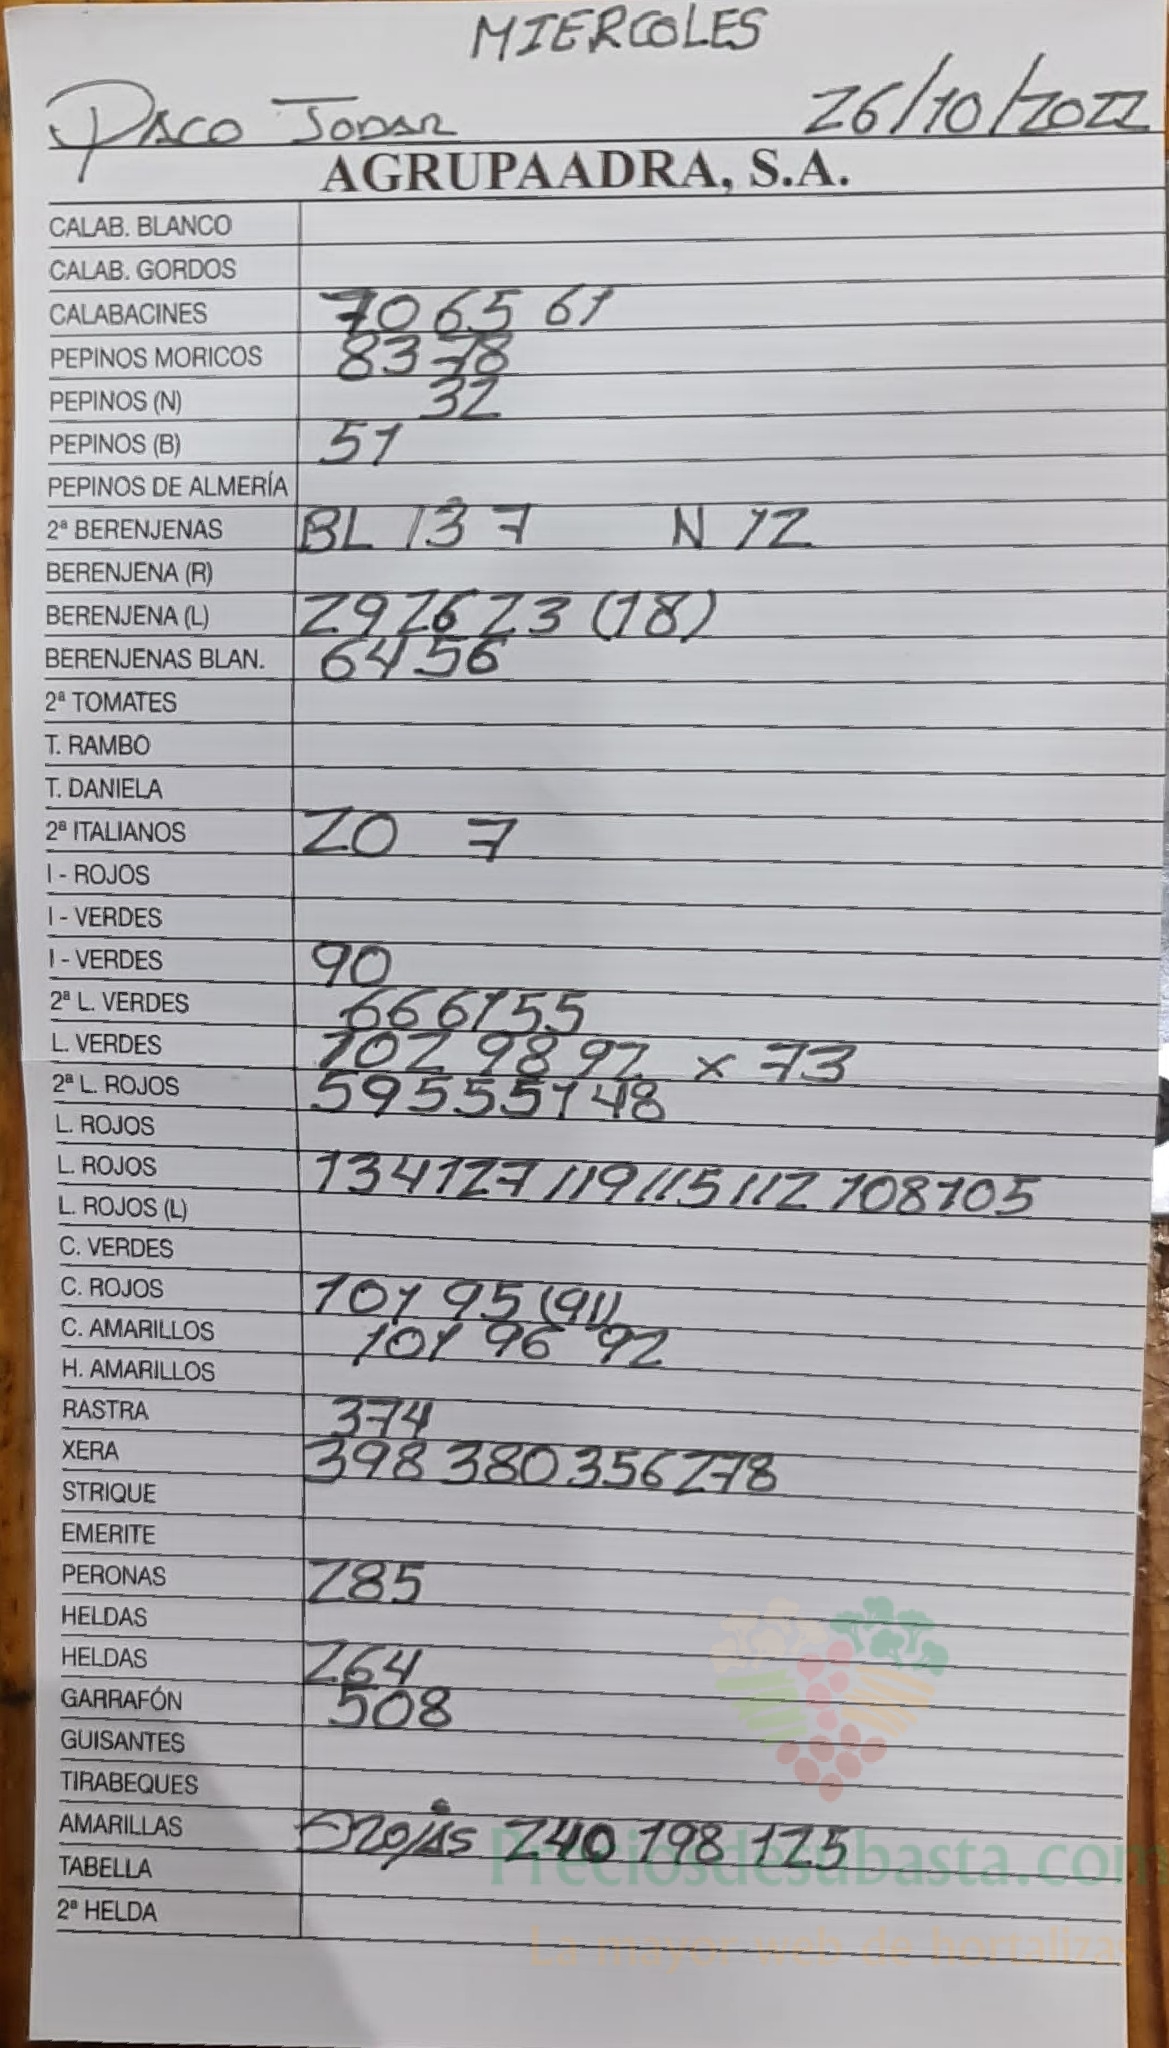 MIERCOLES
PACO JODAR 26/10/2022
AGRUPAADRA, S.A.
CALAB. BLANCO
CALAB. GORDOS
CALABACINES 70 65 61
PEPINOS MORICOS 83 78
PEPINOS (N) 32
PEPINOS (B) 51
PEPINOS DE ALMERÍA
2ª BERENJENAS BL 13 7 N 12
BERENJENA (R)
BERENJENA (L) 29 26 23 (18)
BERENJENAS BLAN. 64 56
2ª TOMATES
T. RAMBO
T. DANIELA
2ª ITALIANOS 20 7
I - ROJOS
I - VERDES
I - VERDES 90
2ª L. VERDES 66 61 55
L. VERDES 102 98 92 x 73
2ª L. ROJOS 59 55 51 48
L. ROJOS
L. ROJOS 134 127 119 115 112 108 105
L. ROJOS (L)
C. VERDES
C. ROJOS 101 95 (91)
C. AMARILLOS 101 96 92
H. AMARILLOS
RASTRA 374
XERA 398 380 356 278
STRIQUE
EMERITE
PERONAS 285
HELDAS
HELDAS 264
GARRAFÓN 508
GUISANTES
TIRABEQUES
AMARILLAS 240 198 125
TABELLA
2ª HELDA
Preciosdesubasta.com
La mayor web de hortalizas